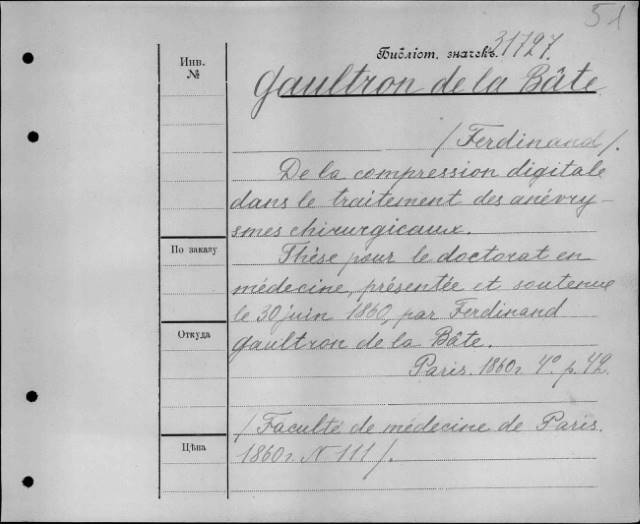 51
Библіот. значекъ. 31727.
Инв.
№
Gaultron de la Bâte
/Ferdinand/.
De la compression digitale
dans le traitement des anévry-
smes chirurgicaux.
По заказу
Thèse pour le doctorat en
médecine, présentée et soutenue
le 30 juin 1860, par Ferdinand
Откуда
Gaultron de la Bâte.
Paris. 1860г. 4º. p. 42.
/Faculté de médecine de Paris.
Цѣна
1860г. N 111/.